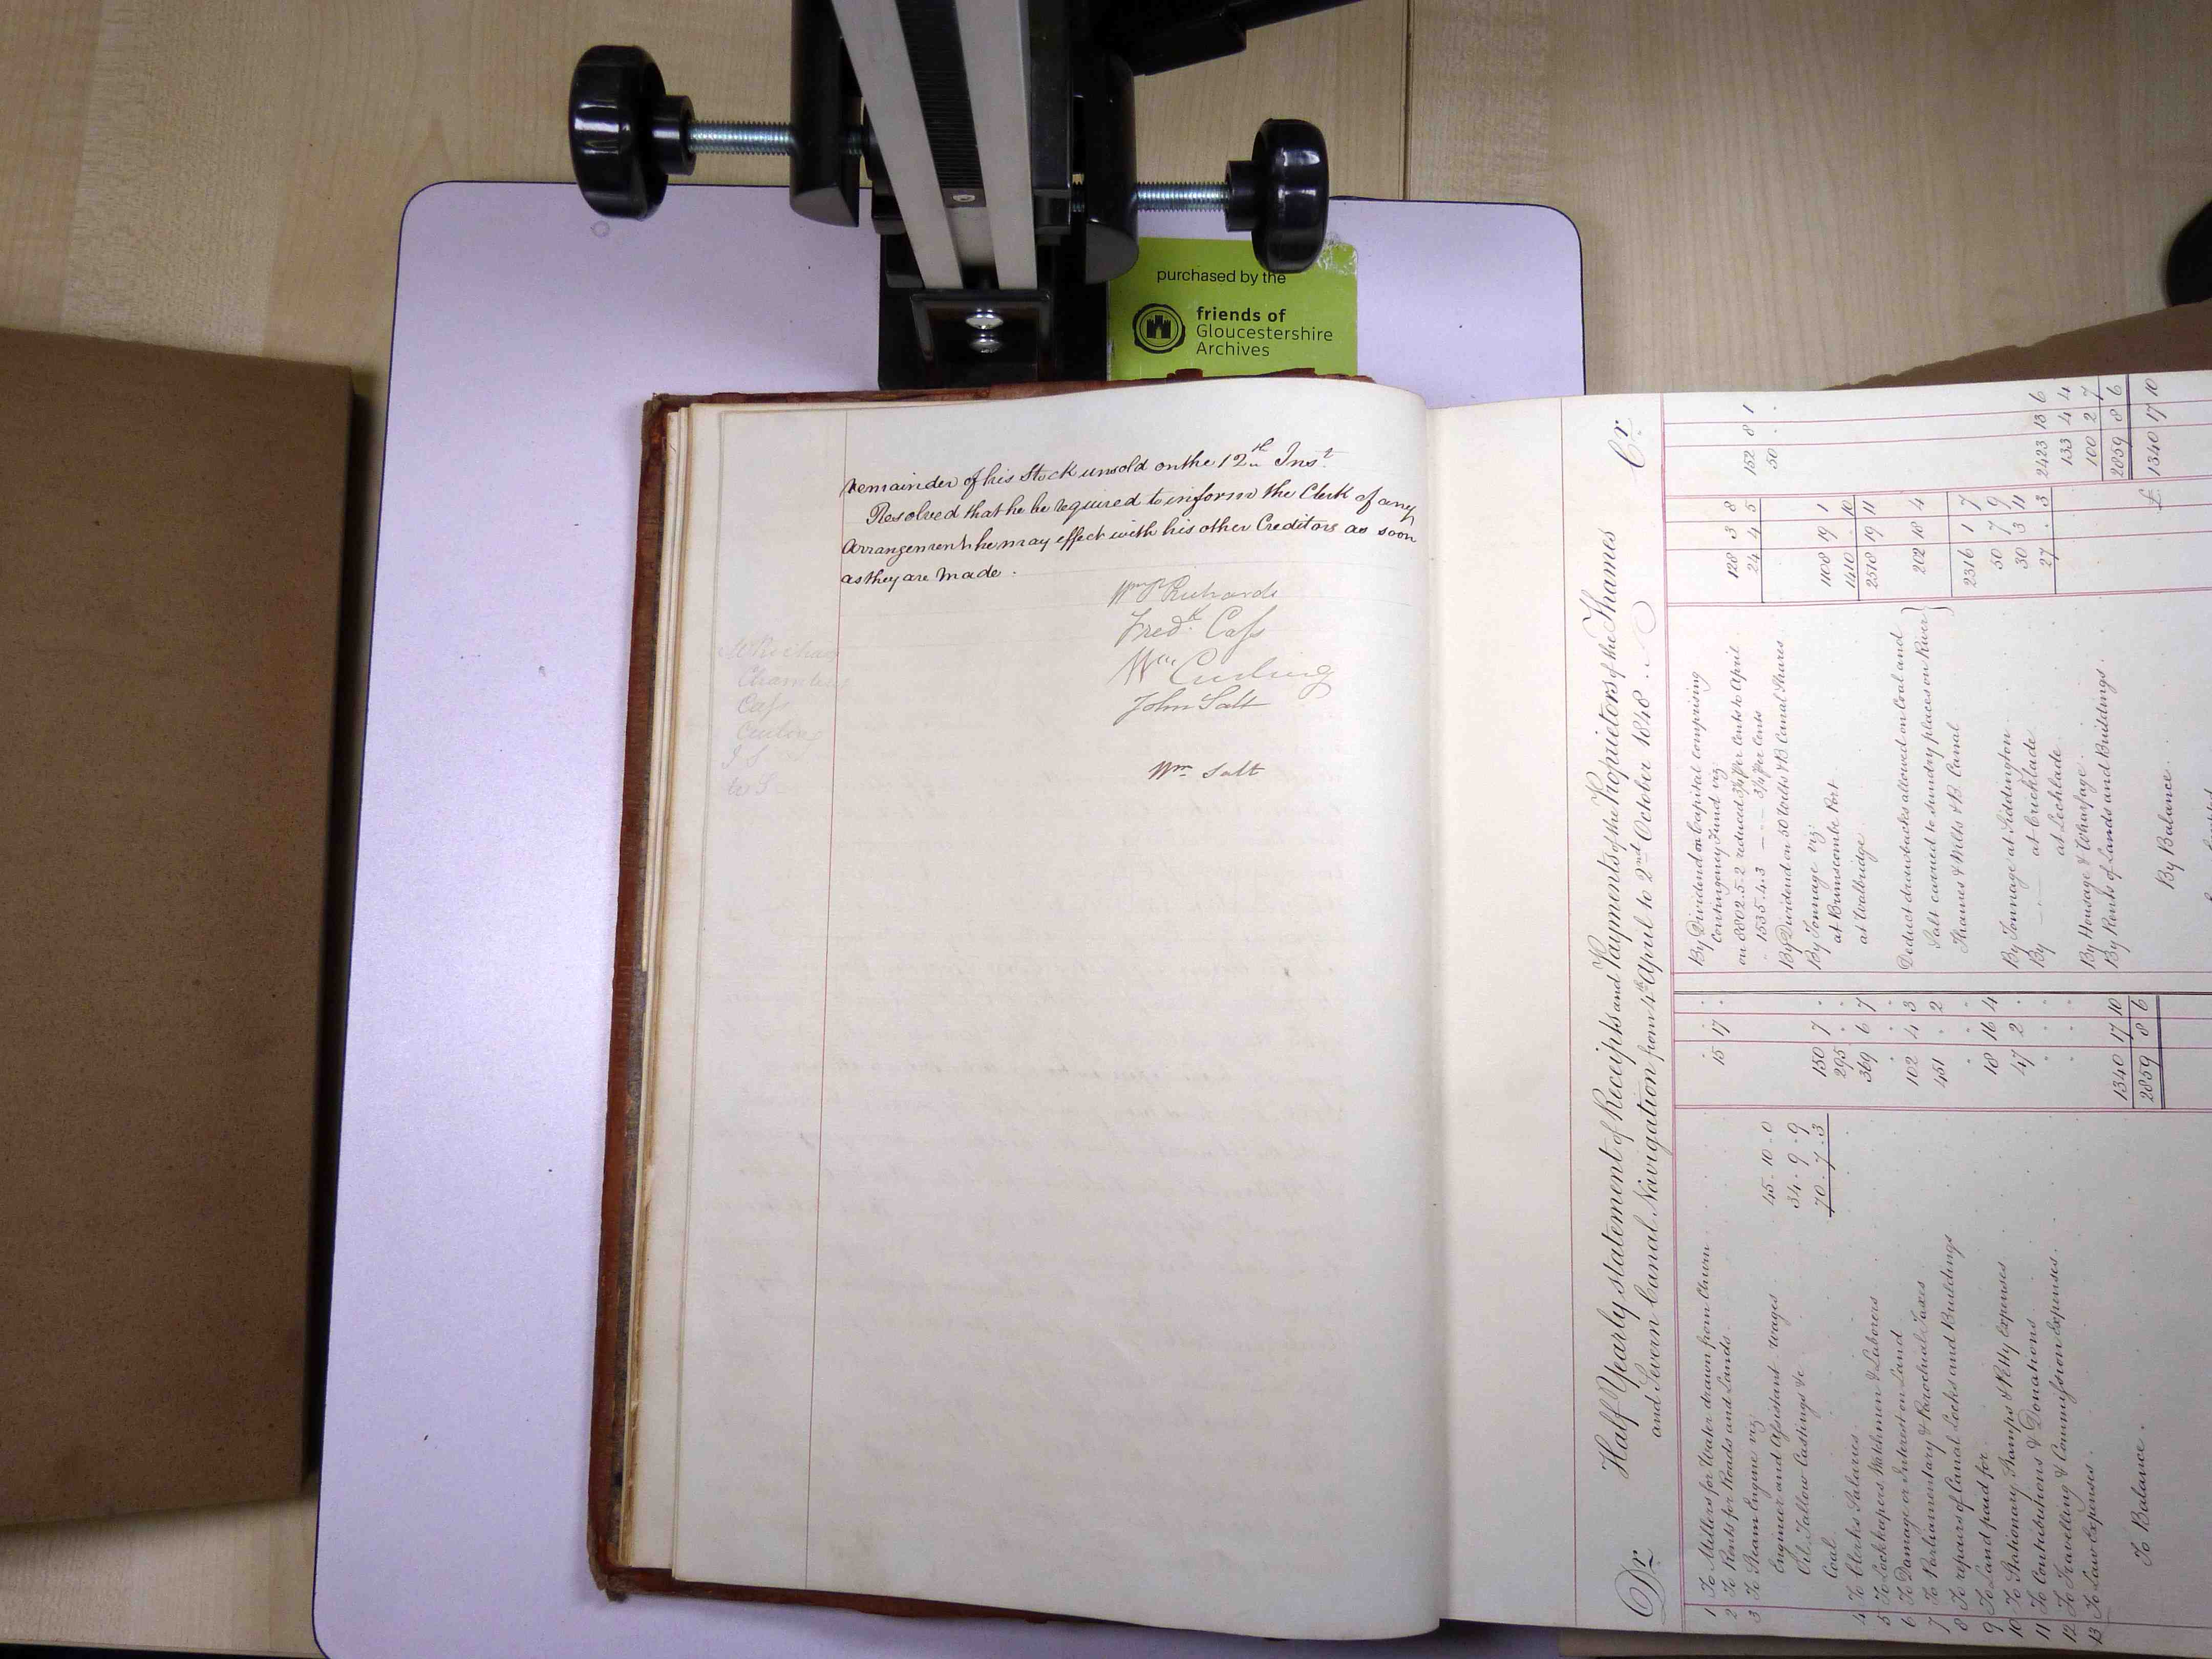 purchased by the
friends of
Gloucestershire
Archives
remainder of his Stock unsold on the 12th Inst.
Resolved that he be required to inform the Clerk of any
Arrangement he may effect with his other Creditors as soon
as they are made.
Wm P Richards
Fredk Cass
Wm Curling
John Salt
Wm Salt
Chambers
Cass
Curling
J S
W S
Dr Half Yearly statement of Receipts and Payments of the Proprietors of the Thames Cr
and Severn Canal Navigation from 4th April to 2nd October 1848
1 To Millers for Water drawn from Churn
2 To Rents for Roads and Lands 15 17 .
3 To Steam Engine viz
Engineer and Assistant Wages 45 . 10 . 0
Oil Tallow Castings &c 34 . 9 . 9
Coal 70 . 7 . 3 150 7 .
4 To Clerks Salaries 295 . .
5 To Lockkeepers Watchmen & Laborers 369 6 7
6 To Damage or Interest on Land
7 To Parliamentary & Parochial Taxes 102 4 3
8 To repairs of Canal Locks and Buildings 451 . 2
9 To Land paid for
10 To Stationary Stamps & Petty Expenses 18 16 4
11 To Contributions & Donations 47 2 .
12 To Travelling & Commission Expenses
13 To Law Expenses
To Balance 1340 17 10
2859 8 6
By Dividend on Capital comprising
Contingency Fund viz
on 8802.5.2 reduced 3 per Cents to April 128 3 8
1535.4.3 24 4 5 152 8 1
By Dividend on 50 Wilts & B Canal Shares 50 .
By Tonnage viz
at Brimscombe Port 1108 19 1
at Wallbridge 1410 . 10
2518 19 11
Deduct drawbacks allowed on Coal and
Salt carried to sundry places on River
Thames & Wilts & B. Canal 202 18 4
2316 1 7
By Tonnage at Siddington 50 7 9
By at Cricklade 30 3 11
at Lechlade 27 . 3 2423 13 6
By Housage & Wharfage 133 4 4
By Rents of Lands and Buildings 100 2 7
2859 8 6
By Balance £ 1340 17 10